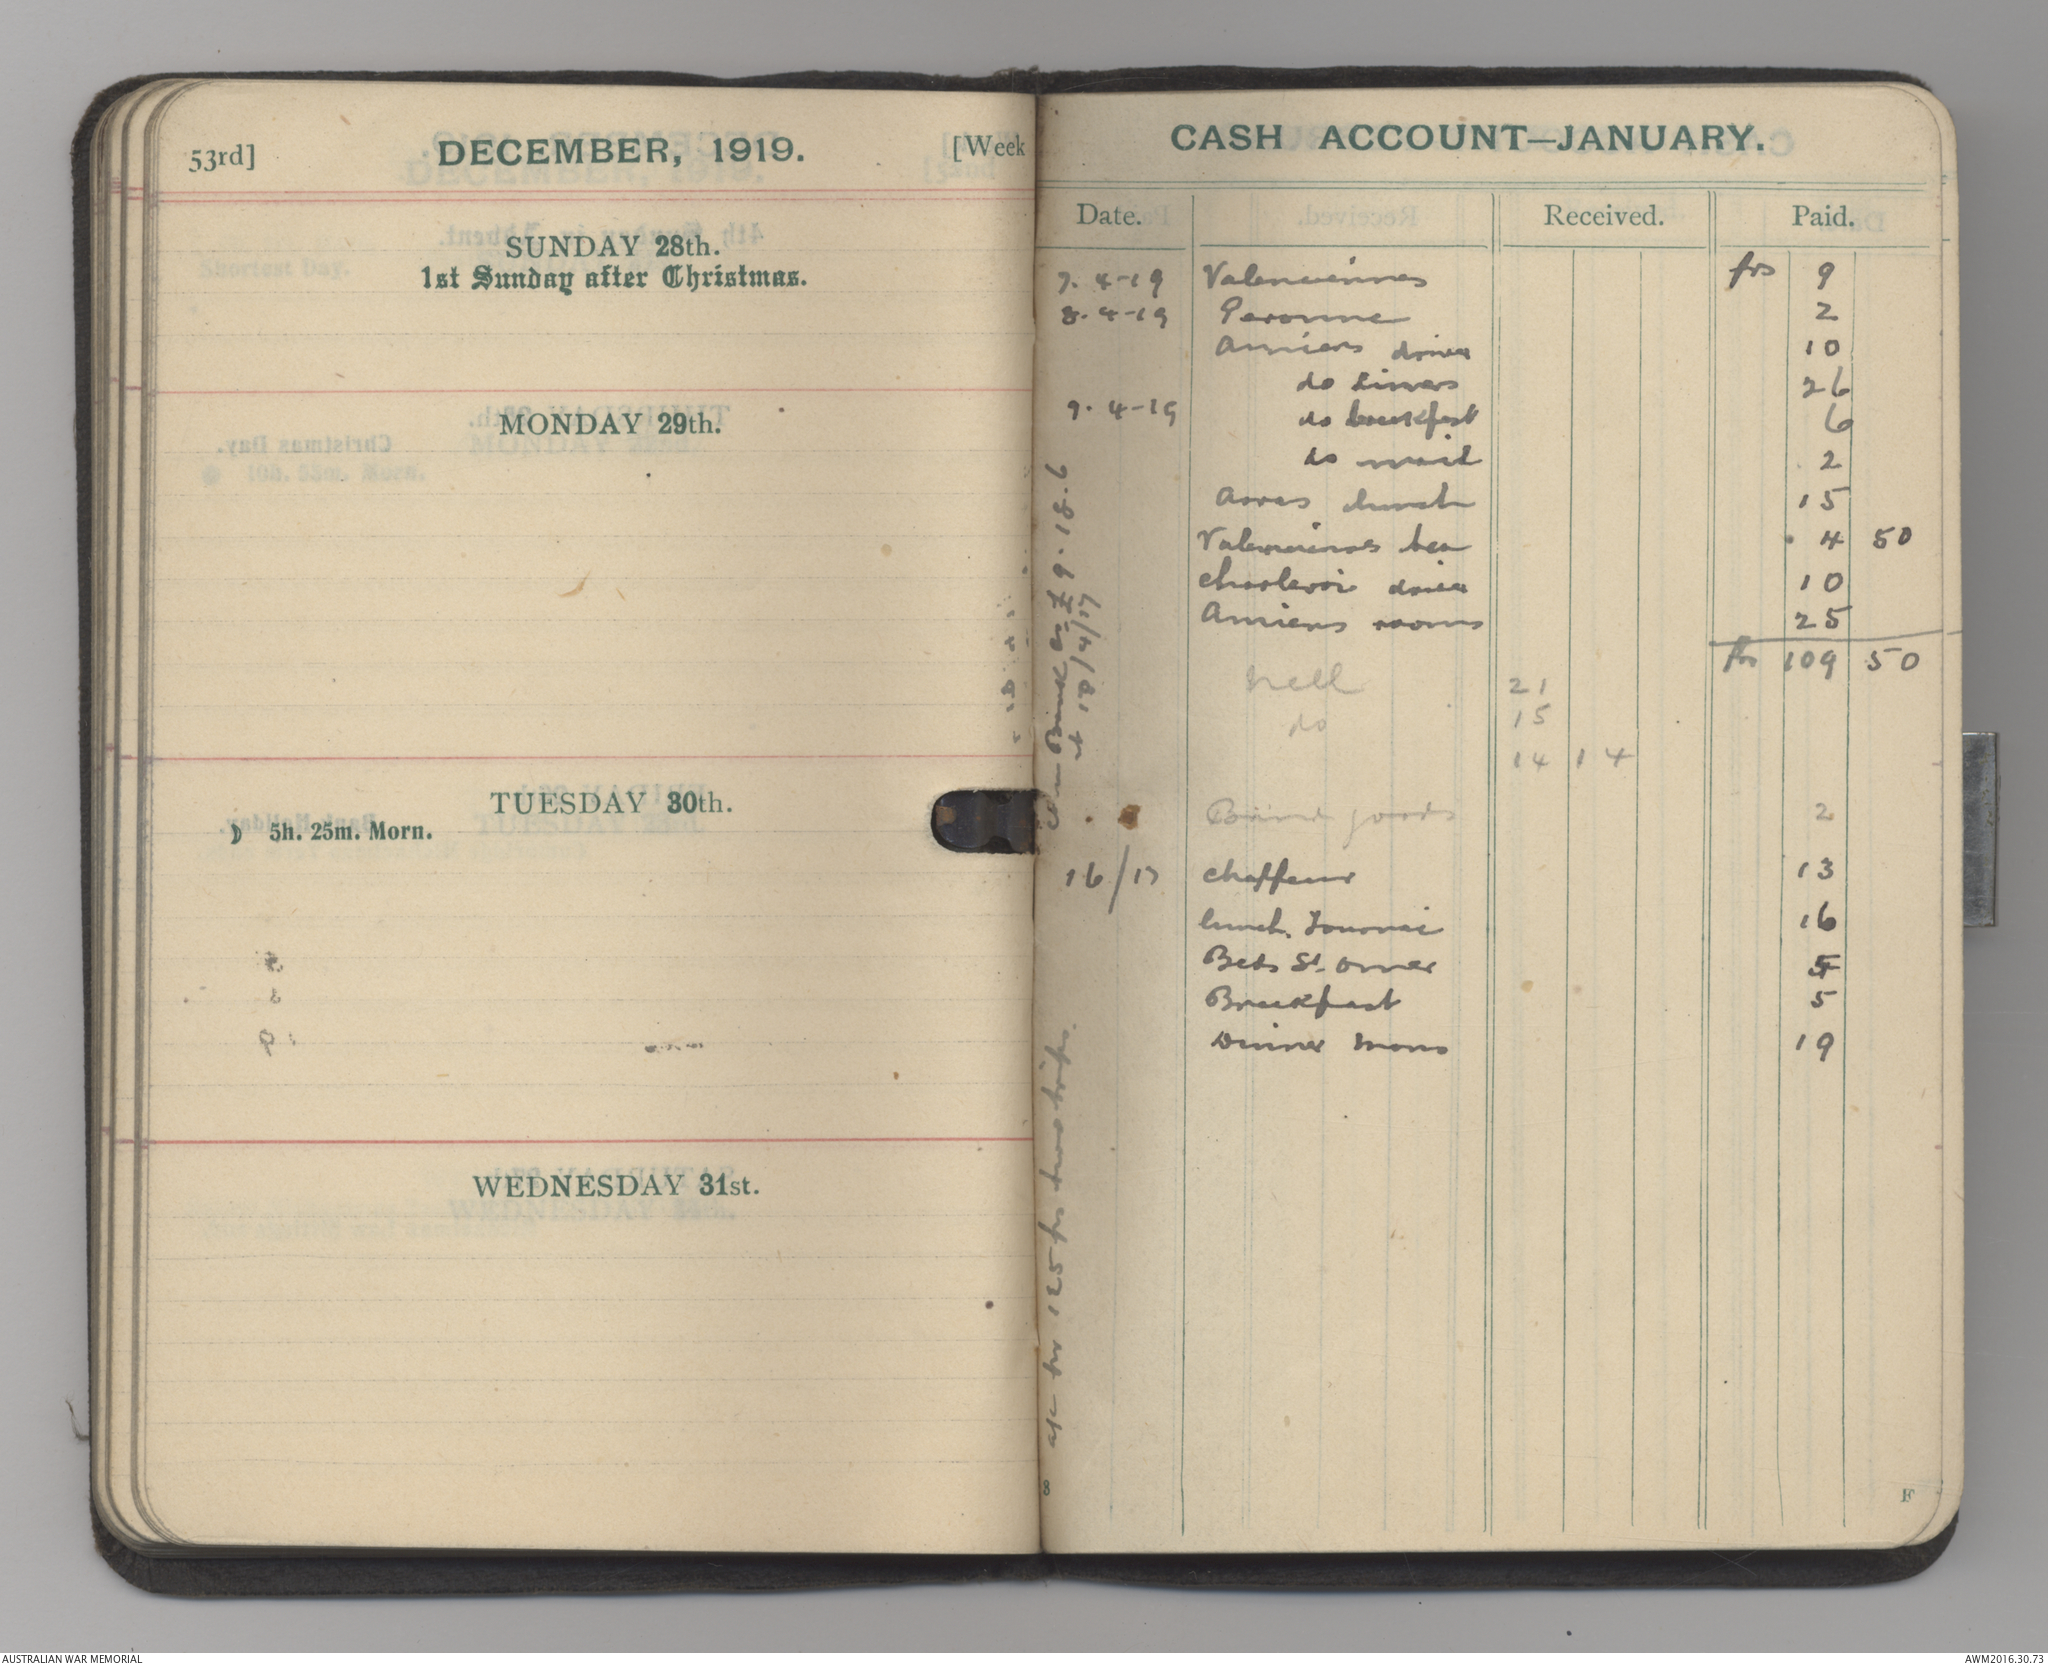 53rd] DECEMBER, 1919. [Week
SUNDAY 28th.
1st Sunday after Christmas.
MONDAY 29th.
TUESDAY 30th.
☽ 5h. 25m. Morn.
WEDNESDAY 31st.
CASH ACCOUNT—JANUARY.
Date. Received. Paid.
7. 4-19 Valenciennes frs 9
8. 4-19 Peronne 2
Amiens drinks 10
do dinners 26
9. 4-19 do breakfast 6
do maid 2
Arras lunch 15
Valenciennes tea 4 50
Charleroi drinks 10
Amiens rooms 25
frs 109 50
Nell 21
do 15
14 14
goods 2
16/17 chaffeur 13
lunch. Tournai 16
Beds St. Omer 5
Breakfast 5
Dinner Mons 19
in Bank £9.18.6
at 10/4/19
125 frs two trips.
8 F
AUSTRALIAN WAR MEMORIAL AWM2016.30.73